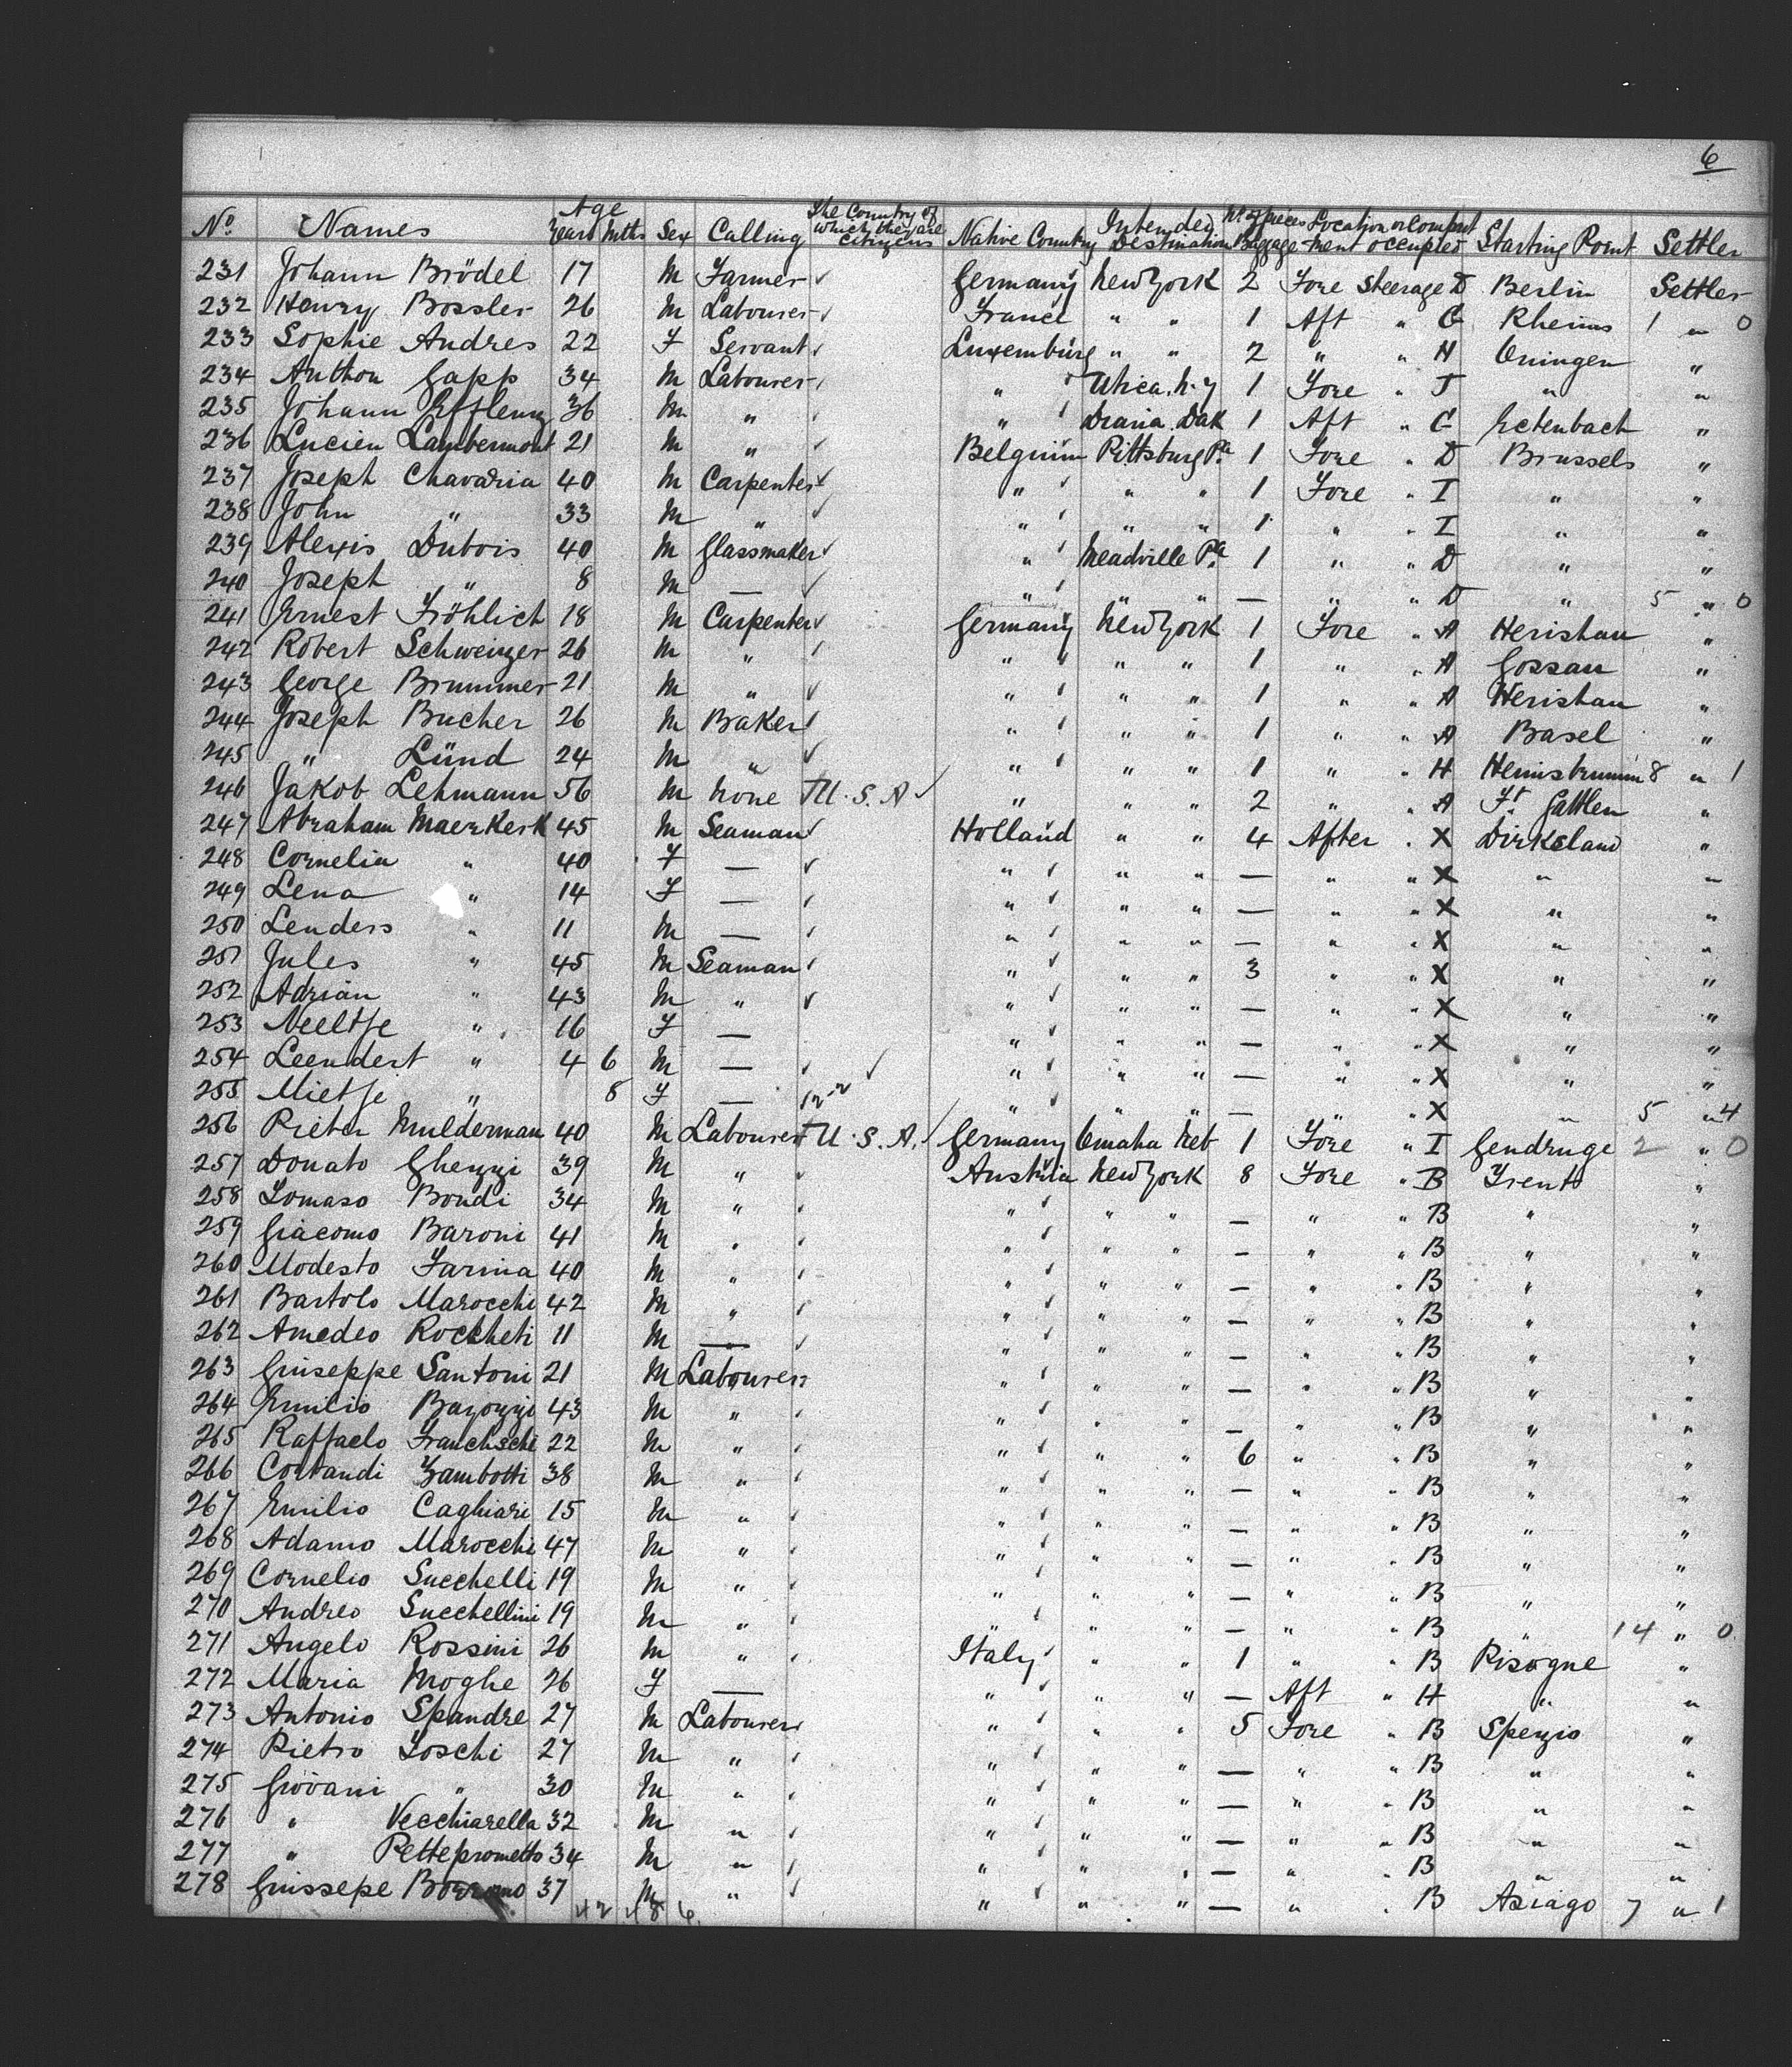 6
No. Names Age Years Mths Sex Calling The Country of which they are citizens Native Country Intended Destination No of pieces Baggage Location or Compartment occupied Starting Point Settler
231 Johann Brödel 17 M Farmer ✓ Germany New York 2 Fore Steerage D Berlin Settler
232 Henry Bossler 26 M Labourer ✓ France " " 1 Aft " C Rheims 1 " 0
233 Sophie Andres 22 F Servant ✓ Luxemburg " " 2 " " H Oningen "
234 Anthon Gapp 34 M Labourer ✓ " ✓ Utica. N.y 1 Fore " J " "
235 Johann 36 M " ✓ " ✓ Dak 1 Aft " C Ectenbach "
236 Lucien Lambermont 21 M " ✓ Belgium Pittsburg Pa 1 Fore " D Brussels "
237 Joseph Chavaria 40 M Carpenter ✓ " ✓ " " 1 Fore " I " "
238 John " 33 M " ✓ " ✓ " " 1 " " I " "
239 Alexis Dubois 40 M Glassmaker ✓ " ✓ Meadville Pa 1 " " D " "
240 Joseph " 8 M — ✓ " ✓ " " — " " D " 5 " 0
241 Ernest Fröhlich 18 M Carpenter ✓ Germany New York 1 Fore " A Herishau "
242 Robert Schweizer 26 M " ✓ " ✓ " " 1 " " A Gossau "
243 George Brummer 21 M " ✓ " ✓ " " 1 " " A Herishau "
244 Joseph Bucher 26 M Baker ✓ " ✓ " " 1 " " A Basel "
245 " Lünd 24 M " ✓ " ✓ " " 1 " " H 8 " 1
246 Jakob Lehmann 56 M None U.S.A ✓ " " " 2 " " A St Gattlen "
247 Abraham Maerkerk 45 M Seaman ✓ Holland " " 4 After " X Dirksland "
248 Cornelia " 40 F — ✓ " ✓ " " — " " X " "
249 Lena " 14 F — ✓ " ✓ " " — " " X " "
250 Lenders " 11 M — ✓ " ✓ " " — " " X " "
251 Jules " 45 M Seaman ✓ " ✓ " " 3 " " X " "
252 Adrian " 43 M " ✓ " ✓ " " — " " X " "
253 Neeltje " 16 F — " ✓ " " — " " X " "
254 Leendert " 4 6 M — ✓ ✓ " ✓ " " — " " X " "
255 Mietje " 8 F — " ✓ " " — " " X " 5 " 4
256 Pieter Mulderman 40 M Labourer U.S.A. ✓ Germany Omaha Neb 1 Fore " I Gendruge 2 " 0
257 Donato Ghezzi 39 M " ✓ Austria New York 8 Fore " B Trento "
258 Tomaso Bondi 34 M " ✓ " ✓ " " — " " B " "
259 Giacomo Baroni 41 M " ✓ " ✓ " " — " " B " "
260 Modesto Farina 40 M " ✓ " ✓ " " — " " B " "
261 Bartolo Marocchi 42 M " ✓ " ✓ " " — " " B " "
262 Amedeo Rockheti 11 M — ✓ " ✓ " " — " " B " "
263 Guiseppe Santoni 21 M Labourer " ✓ " " — " " B " "
264 Emilio Bazozzi 43 M " ✓ " ✓ " " — " " B " "
265 Raffaelo Franchschi 22 M " ✓ " ✓ " " 6 " " B " "
266 Corrandi Zambotti 38 M " ✓ " ✓ " " — " " B " "
267 Emilio Cagliari 15 M " ✓ " ✓ " " — " " B " "
268 Adamo Marocchi 47 M " ✓ " ✓ " " — " " B " "
269 Cornelio Succhelli 19 M " ✓ " ✓ " " — " " B " "
270 Andreo Succhellini 19 M " ✓ " ✓ " " — " " B " 14 " 0
271 Angelo Rossini 26 M " ✓ Italy ✓ " " 1 " " B Pisogne "
272 Maria Moghe 26 F — " ✓ " " — Aft " H " "
273 Antonio Spandre 27 M Labourer ✓ " ✓ " " 5 Fore " B Spezio "
274 Pietro Toschi 27 M " ✓ " ✓ " " — " " B " "
275 Giovani " 30 M " ✓ " ✓ " " — " " B " "
276 " Vecchiarella 32 M " ✓ " ✓ " " — " " B " "
277 " Petteprometto 34 M " ✓ " ✓ " " — " " B " "
278 Giussepe 37 M " ✓ " ✓ " " — " " B Asiago 7 " 1